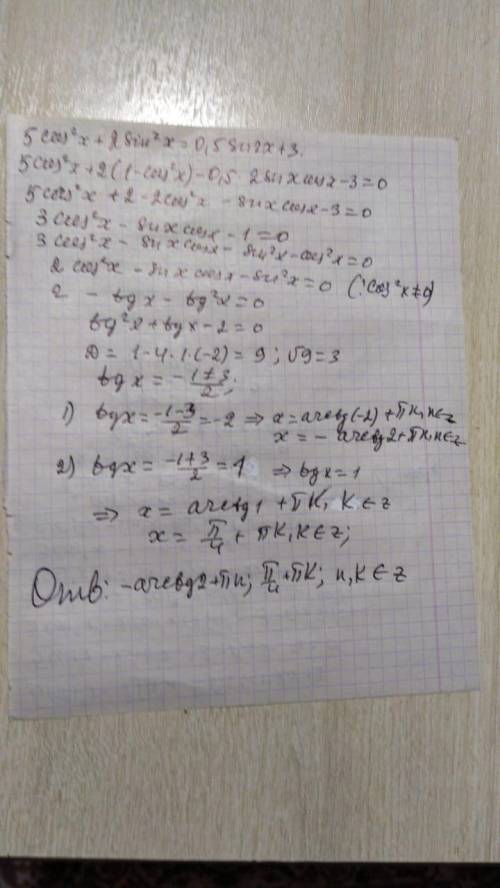 5cos²x + 2sin²x = 0,5sin2x + 3.
5cos²x + 2(1-cos²x) - 0,5 · 2sinx cosx - 3 = 0
5cos²x + 2 - 2cos²x - sinx cosx - 3 = 0
3cos²x - sinx cosx - 1 = 0
3cos²x - sinx cosx - sin²x - cos²x = 0
2cos²x - sinx cosx - sin²x = 0 (: cos²x ≠ 0)
2 - tgx - tg²x = 0
tg²x + tgx - 2 = 0
D = 1 - 4 · 1 · (-2) = 9 ; √9 = 3
tgx = -1±3/2;
1) tgx = -1-3/2 = -2 ⇒ x = arctg(-2) + πn, n∈z
x = - arctg2 + πn, n∈z
2) tgx = -1+3/2 = 1 ⇒ tgx = 1
⇒ x = arctg1 + πk, k∈z
x = π/4 + πk, k∈z;
Отв: -arctg2 + πn; π/4 + πk; n,k∈z